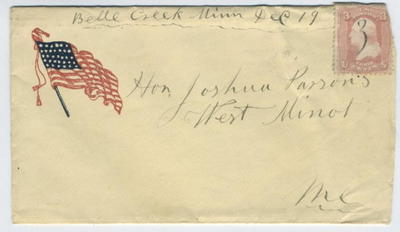 Belle Creek Minn Dec 19
3 3
3
Hon. Joshua Parsons
West Minot
Me